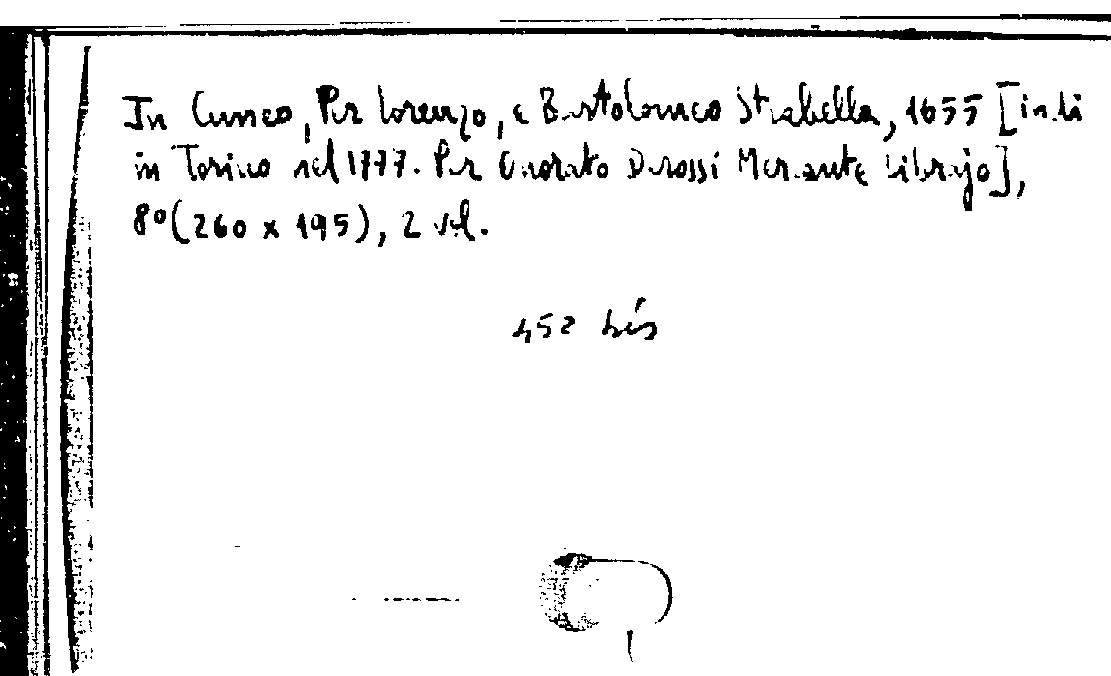 In Cuneo, Per Lorenzo, e Bartolomeo Strabella, 1655 [indi
in Torino nel 1777. Per Onorato Derossi Mercante Librajo],
8° (260 x 195), 2 vol.
452 bis